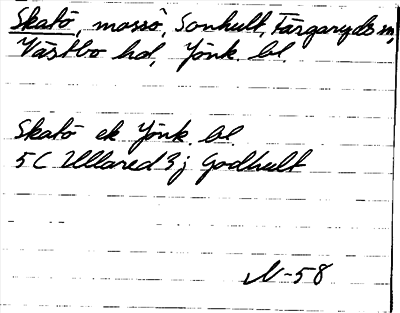 Skatö, mossö, Sonhult, Färgaryds sn,
Västbo hd, Jönk. bl.
Skatö ek Jönk. bl.
5C Ullared 3j Godhult
N-58